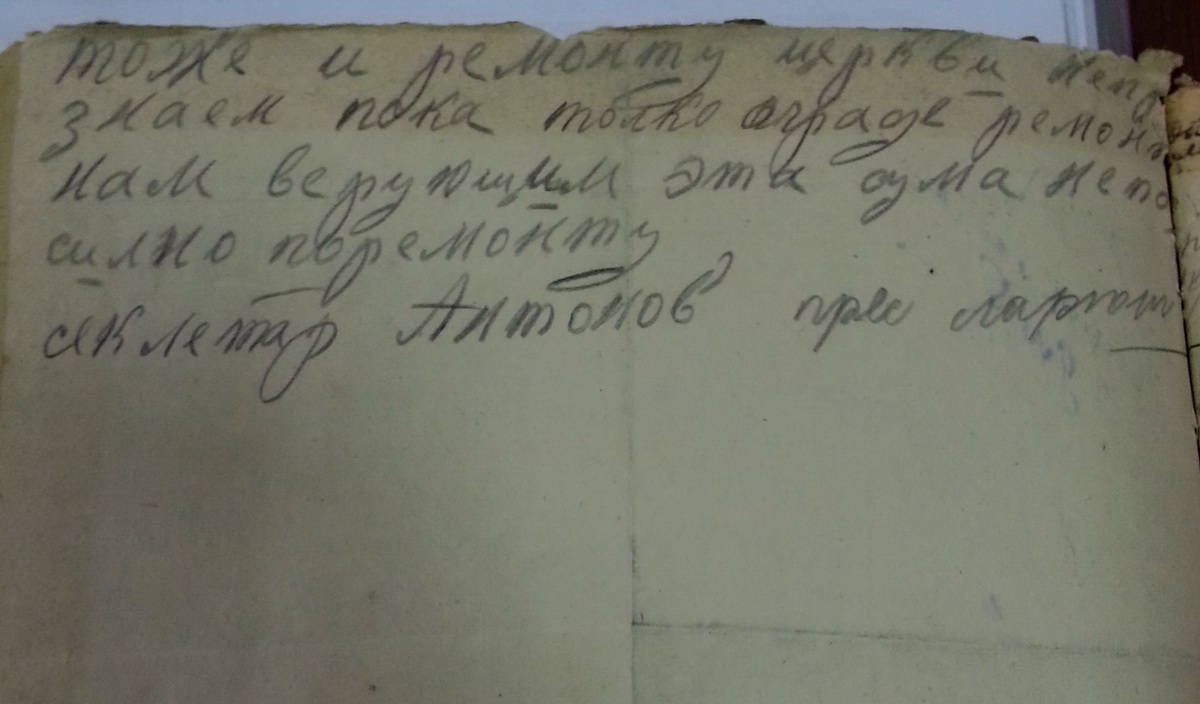 тоже и ремонту церкви непр
знаем пока толко аграде ремонт
нам верующим эта сума непо
силно поремонту
секлетар Антонов прес